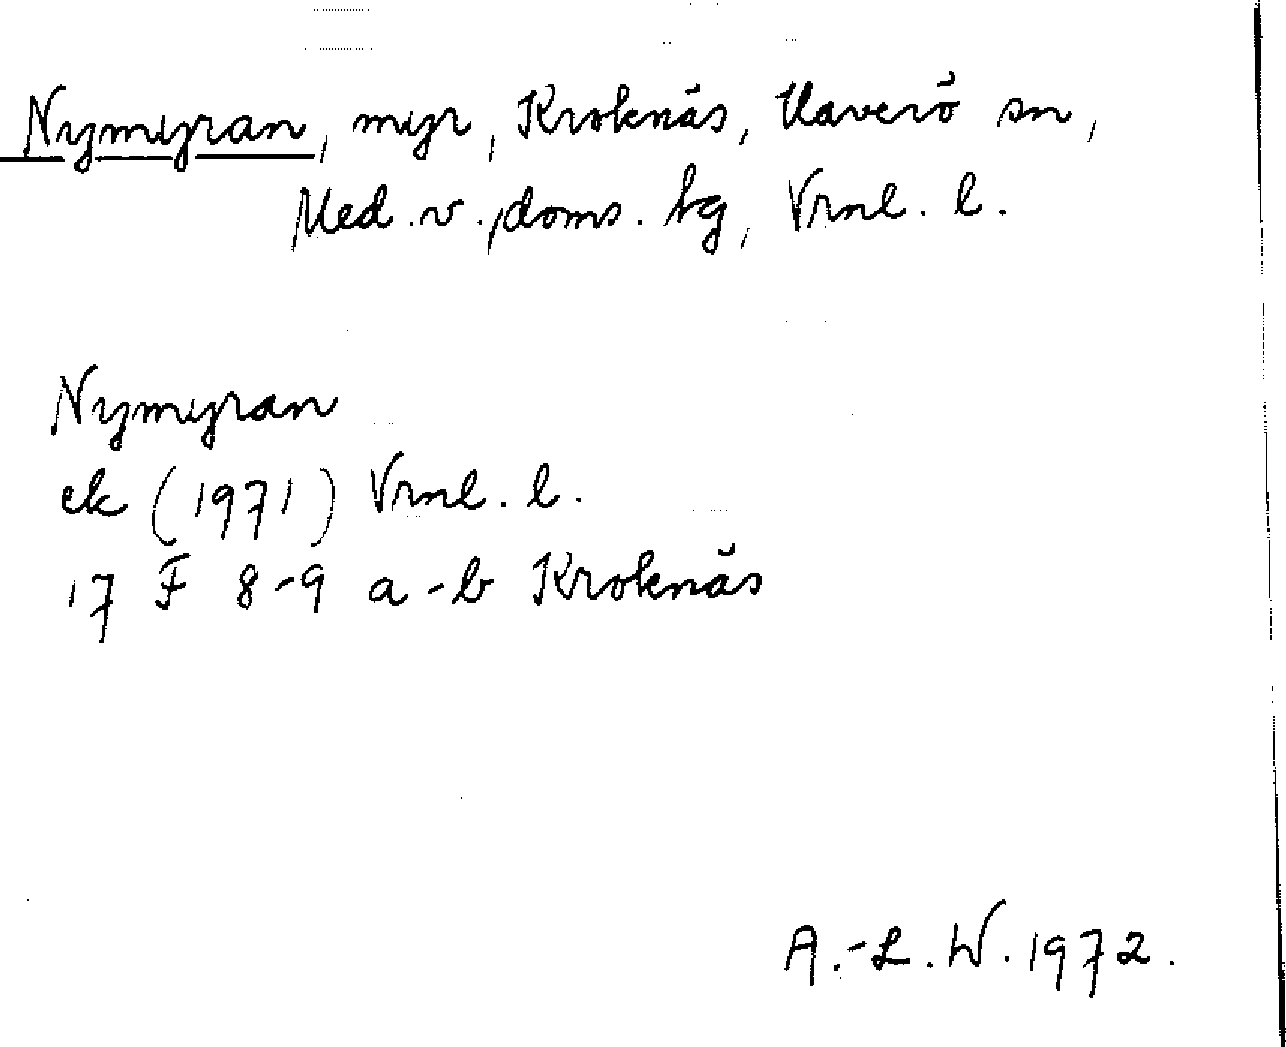 Nymyran, myr, Kroknäs, Haverö sn,
Med. v. doms. tg, Vrnl. l.
Nymyran
ek (1971) Vrnl. l.
17 F 8-9 a-b Kroknäs
A.-L. W. 1972.